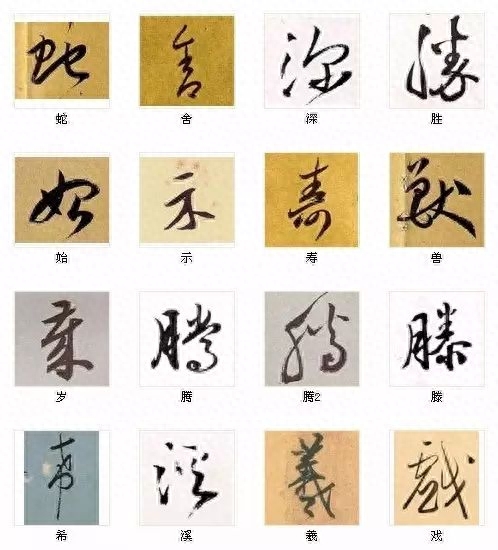 蛇 舍 深 胜
始 示 寿 兽
岁 腾 腾2 滕
希 溪 羲 戏